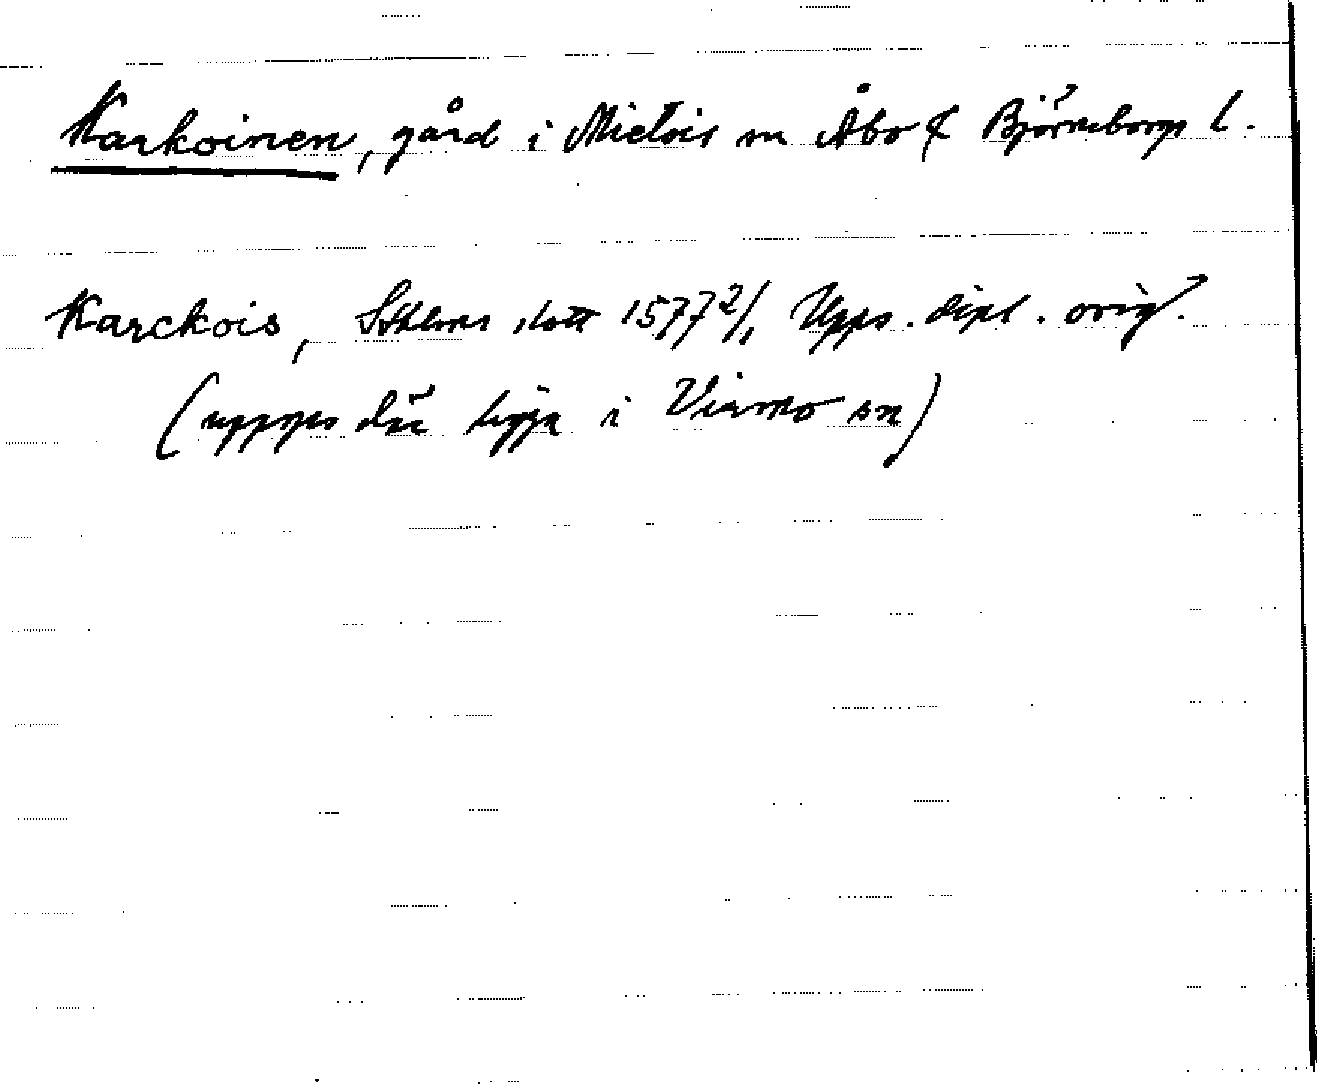 Karkoinen, gård i Mietois sn Åbo & Björneborgs l.
Karckois, Sthlms slott 1577 2/1 Upps. dipl. orig.
(uppges där ligga i Virmo sn)